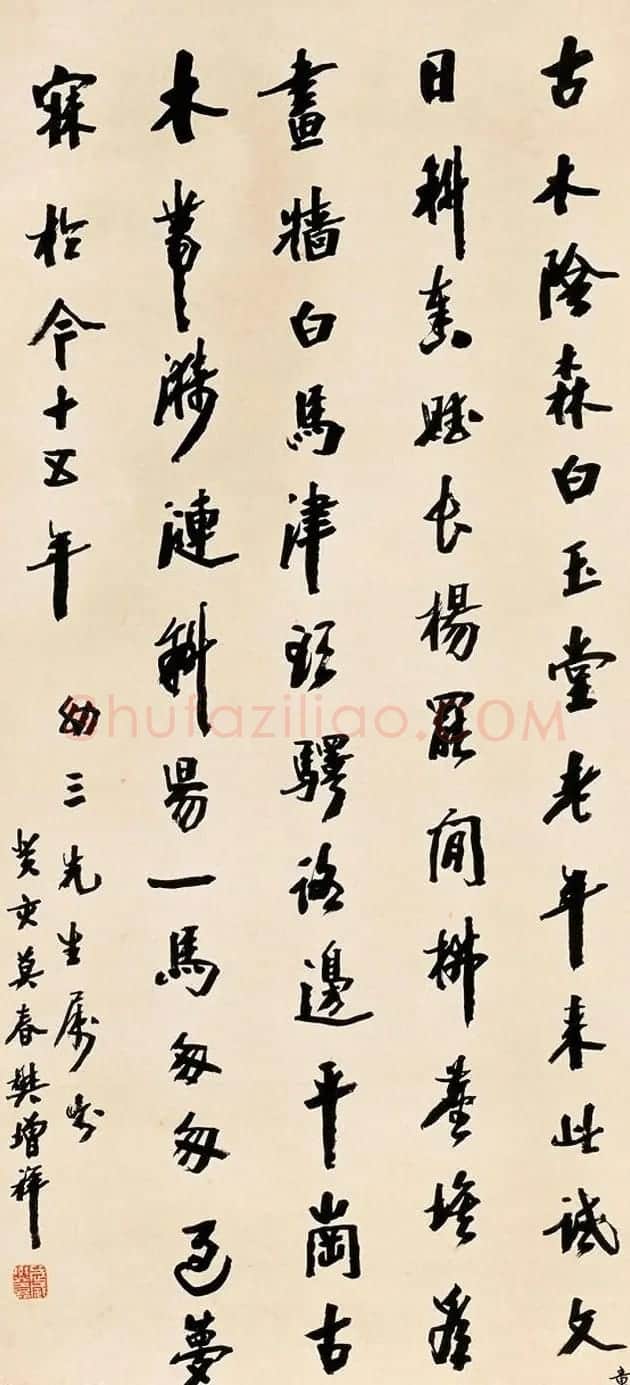 古木陰森白玉堂老年來此試文章
日斜奏賦長楊罷閒拂塵埃看
畫牆白馬津頭驛路邊平崗古
木帶漪漣斜陽一馬匆匆過夢
寐於今十五年
幼三先生屬
癸亥莫春樊增祥
©hufaziliao.COM